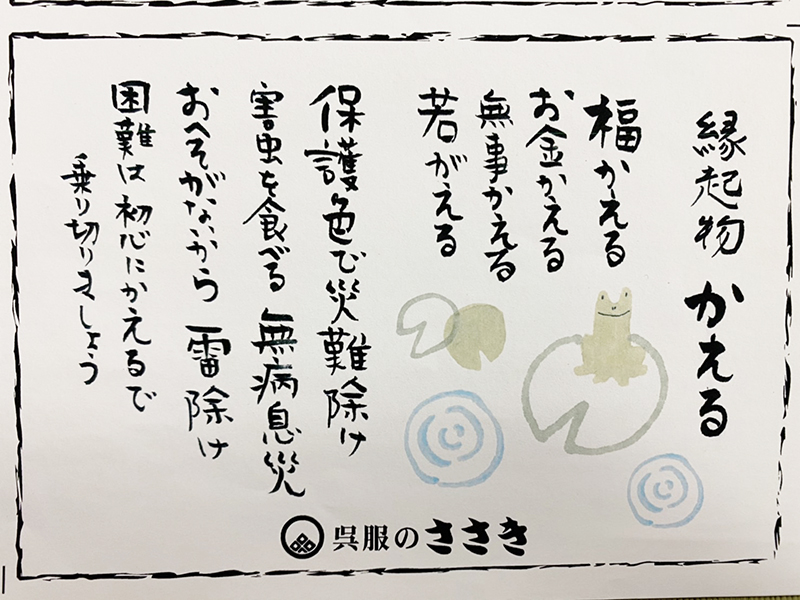 縁起物 かえる
福かえる
お金かえる
無事かえる
若がえる
保護色で災難除け
害虫を食べる 無病息災
おへそがないから 雷除け
困難は初心にかえるで
乗り切りましょう
呉服のささき